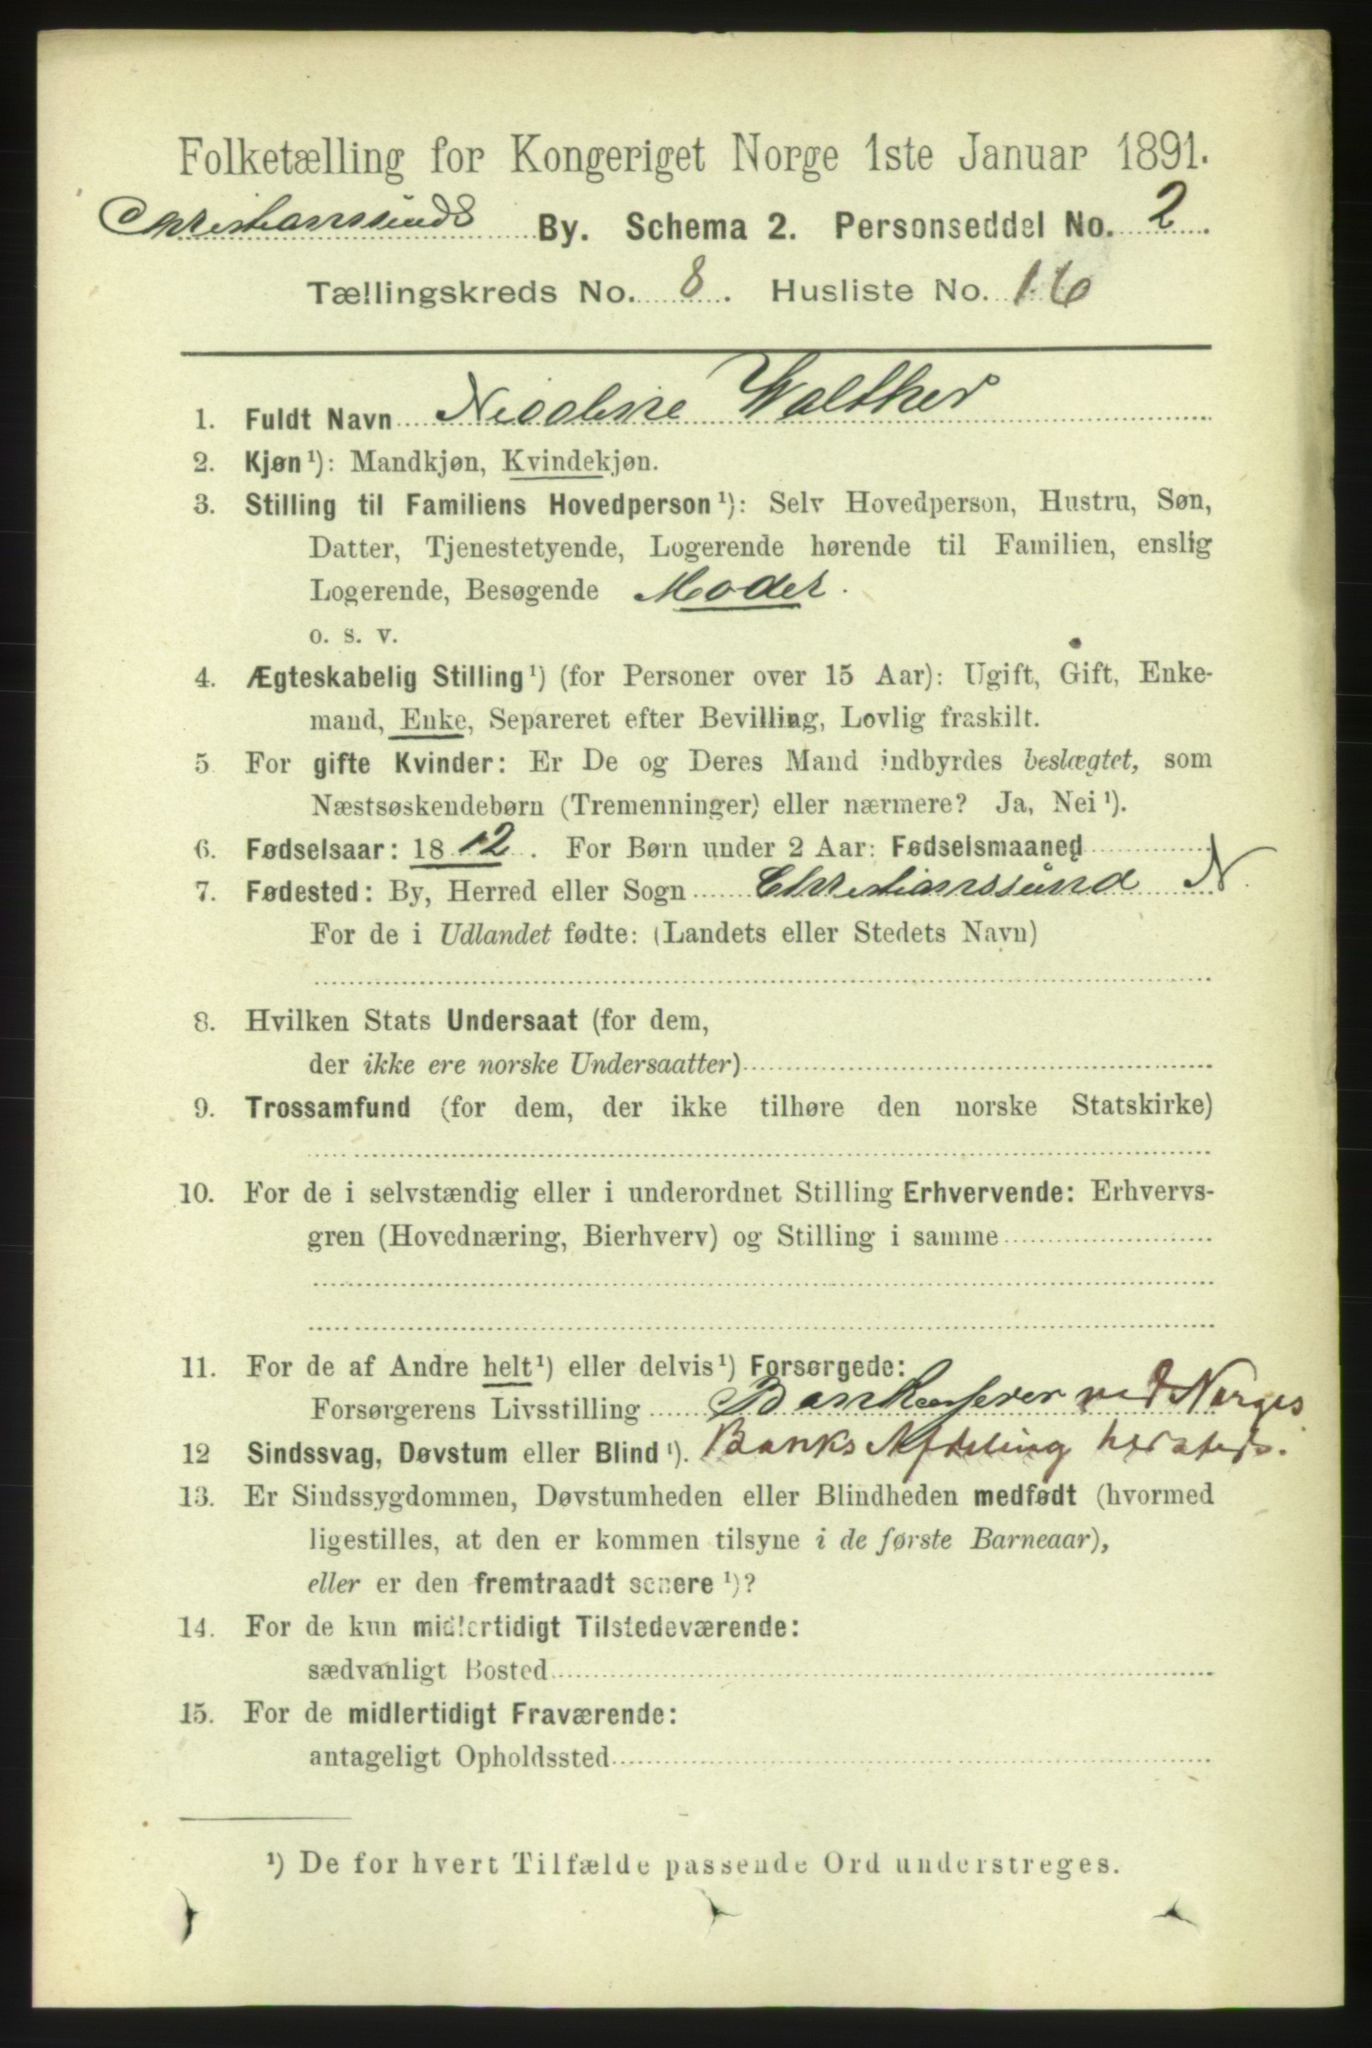 Folketælling for Kongeriget Norge 1ste Januar 1891.
Christianssunds By. Schema 2. Personseddel No. 2.
Tællingskreds No. 8. Husliste No. 16
1. Fuldt Navn Nicoline Walther
2. Kjøn¹): Mandkjøn, Kvindekjøn.
3. Stilling til Familiens Hovedperson¹): Selv Hovedperson, Hustru, Søn,
Datter, Tjenestetyende, Logerende hørende til Familien, enslig
Logerende, Besøgende Moder.
o. s. v.
4. Ægteskabelig Stilling¹) (for Personer over 15 Aar): Ugift, Gift, Enke-
mand, Enke, Separeret efter Bevilling, Lovlig fraskilt.
5 For gifte Kvinder: Er De og Deres Mand indbyrdes beslægtet, som
Næstsøskendebørn (Tremenninger) eller nærmere? Ja, Nei¹).
6. Fødselsaar: 1812. For Børn under 2 Aar: Fødselsmaaned
7. Fødested: By, Herred eller Sogn Christianssund N
For de i Udlandet fødte: (Landets eller Stedets Navn)
8. Hvilken Stats Undersaat (for dem,
der ikke ere norske Undersaatter)
9. Trossamfund (for dem, der ikke tilhøre den norske Statskirke)
10. For de i selvstændig eller i underordnet Stilling Erhvervende: Erhvervs-
gren (Hovednæring, Bierhverv) og Stilling i samme
11. For de af Andre helt¹) eller delvis¹) Forsørgede:
Forsørgerens Livsstilling Bankasserer ved Norges
12 Sindssvag, Døvstum eller Blind¹). Banks Afdeling
13. Er Sindssygdommen, Døvstumheden eller Blindheden medfødt (hvormed
ligestilles, at den er kommen tilsyne i de første Barneaar),
eller er den fremtraadt senere¹)?
14. For de kun midlertidigt Tilstedeværende:
sædvanligt Bosted
15. For de midlertidigt Fraværende:
antageligt Opholdssted
¹) De for hvert Tilfælde passende Ord understreges.